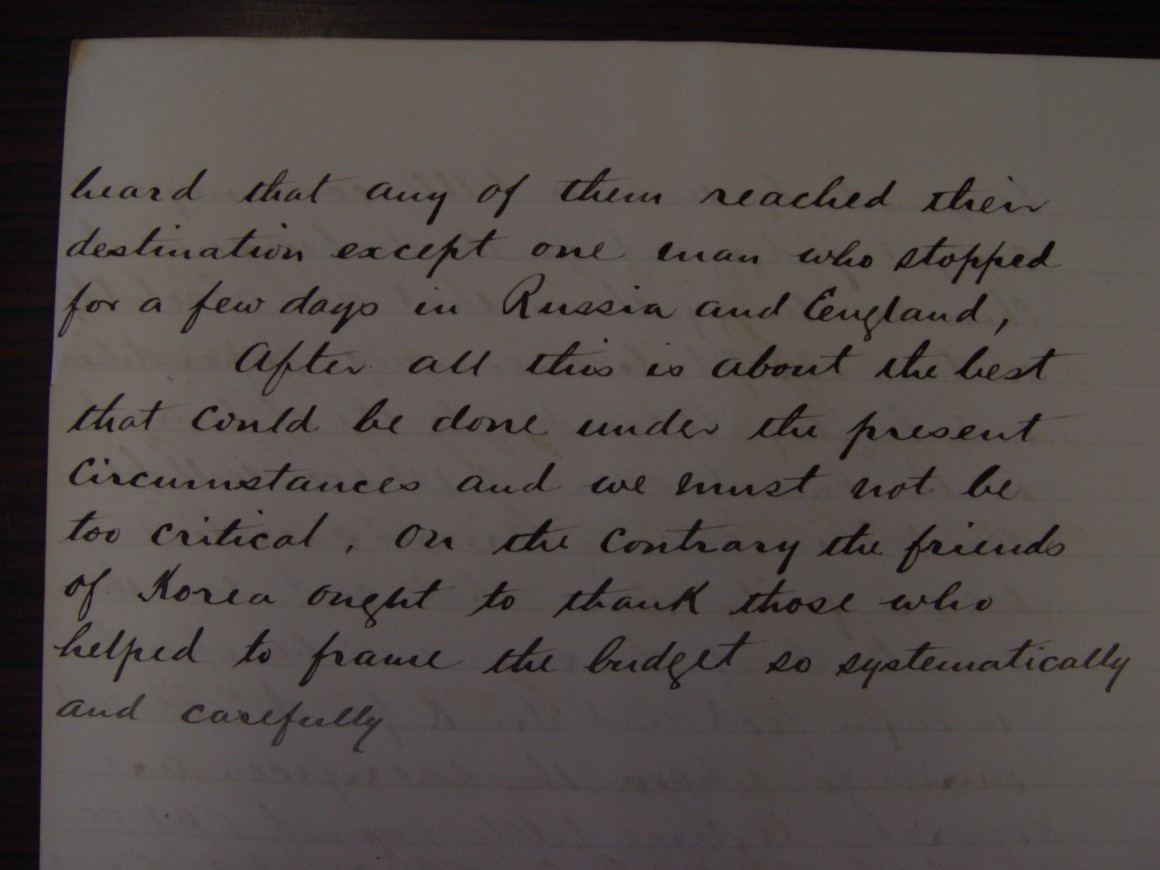 heard that any of them reached their
destination except one man who stopped
for a few days in Russia and England,
After all this is about the best
that could be done under the present
circumstances and we must not be
too critical. On the contrary the friends
of Korea ought to thank those who
helped to frame the budget so systematically
and carefully